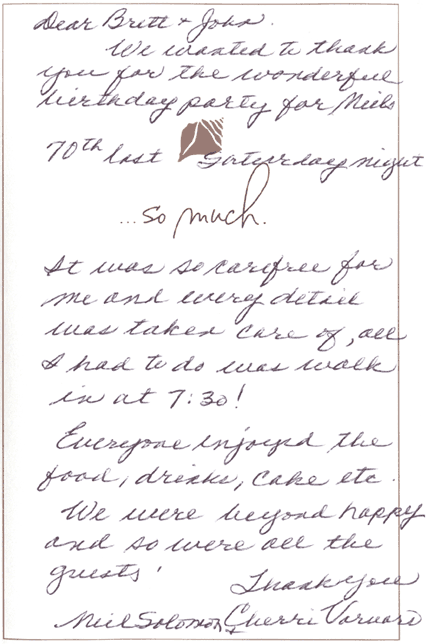 Dear Brett + John.
We wanted to thank
you for the wonderful
birthday party for Neils
70th last Saturday night
...so much.
It was so carefree for
me and every detail
was taken care of, all
I had to do was walk
in at 7:30!
Everyone enjoyed the
food, drinks, cake etc.
We were beyond happy
and so were all the
guests!
Thank you
Neil Solomon + Cherri